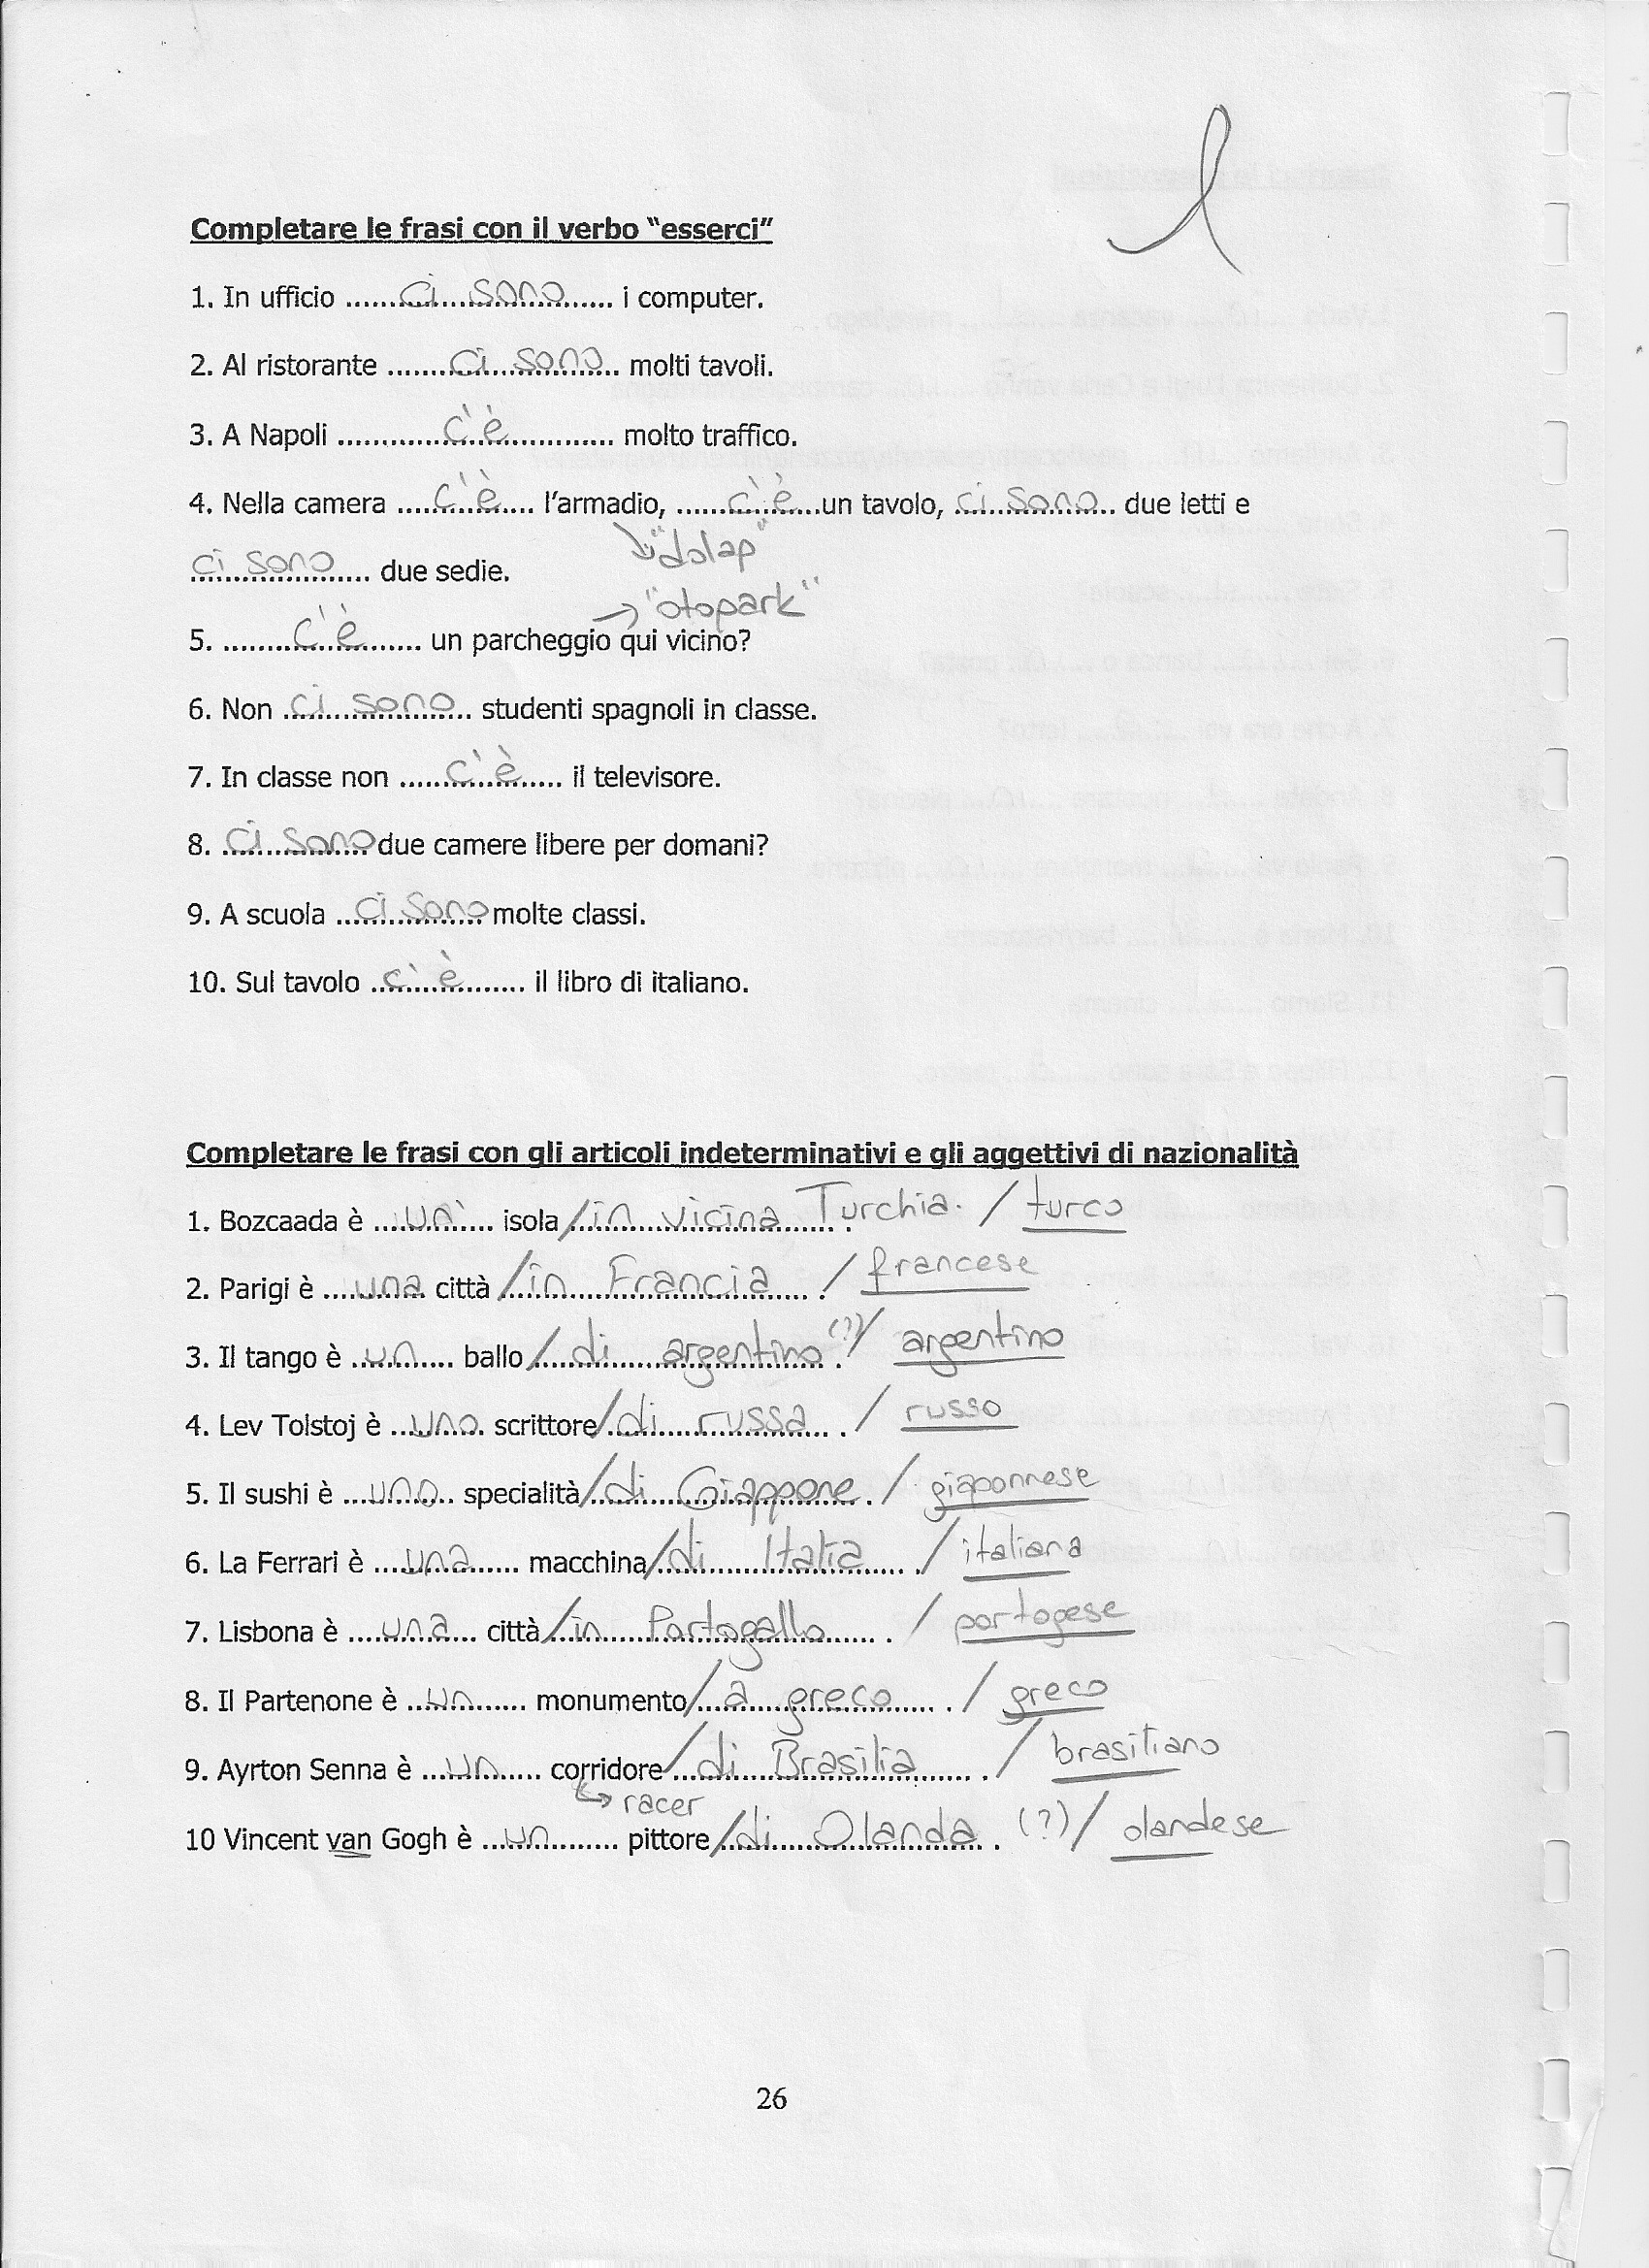 Completare le frasi con il verbo “esserci”
1. In ufficio ......ci sono...... i computer.
2. Al ristorante ......ci sono...... molti tavoli.
3. A Napoli ......c'è...... molto traffico.
4. Nella camera ....c'è.... l’armadio, ......c'è...un tavolo, ci sono.. due letti e
"dolap"
ci sono due sedie.
→ "otopark"
5. ......c'è...... un parcheggio qui vicino?
6. Non ci sono studenti spagnoli in classe.
7. In classe non .....c'è.... il televisore.
8. ci sono due camere libere per domani?
9. A scuola ..ci sono molte classi.
10. Sul tavolo ..c'è...... il libro di italiano.
Completare le frasi con gli articoli indeterminativi e gli aggettivi di nazionalità
1. Bozcaada è ....un'.... isola/in vicina Turchia. / turco
2. Parigi è ....una città /in Francia... / francese
3. Il tango è ..un.... ballo/...di argentino (?)/ argentino
4. Lev Tolstoj è ..uno. scrittore/di russa... / russo
5. Il sushi è ...uno.. specialità/di Giappone. / giaponnese
6. La Ferrari è ....una..... macchina/di Italia.... / italiana
7. Lisbona è ....una... città/in Portogallo..... / portogese
8. Il Partenone è ..un...... monumento/...a greco..... / greco
9. Ayrton Senna è ...un..... corridore/di Brasilia..... / brasiliano
↳ racer
10 Vincent van Gogh è ...un...... pittore/di Olanda. (?)/ olandese
26